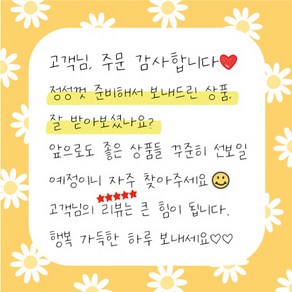 고객님, 주문 감사합니다❤️
정성껏 준비해서 보내드린 상품,
잘 받아보셨나요?
앞으로도 좋은 상품들 꾸준히 선보일
예정이니 자주 찾아주세요🙂
고객님의 리뷰는 큰 힘이 됩니다.
행복 가득한 하루 보내세요♡♡